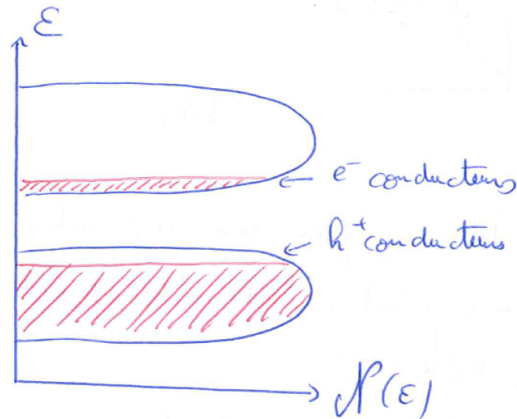 ε
e⁻ conducteurs
h⁺ conducteurs
𝒩(ε)